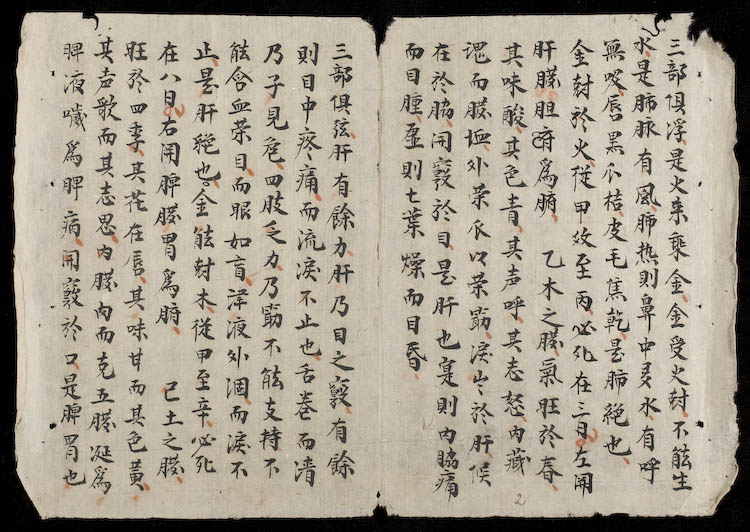 三部俱浮是火来乘金金受火尅不能生
水是肺脉有風肺热則鼻中多水有呼
無吸唇黑爪桔皮毛焦乾是肺絕也
金尅於火從甲效至丙必死在三日左開
肝臟胆府為腑　乙木之臟氣旺於春
其味酸其色青其声呼其志怒内藏
魂而臟血外荣爪以荣筋淚出於肝候
在於脇開竅於目是肝也寔則内脇痛
而目腫虛則七葉燥而目昏
三部俱弦肝有餘力肝乃目之竅有餘
則目中疼痛而流淚不止也舌卷而清
乃子見危四肢乏力乃筋不能支持不
能含血荣目而眼如盲津液外涸而淚不
止是肝絕也金能尅木從甲至辛必死
在八日右開脾臟胃為腑　己土之臟
旺於四季其花在唇其味甘而其色黄
其声歌而其志思内臟肉而克五臟凝為
脾液噦為脾病開竅於口是脾胃也
2